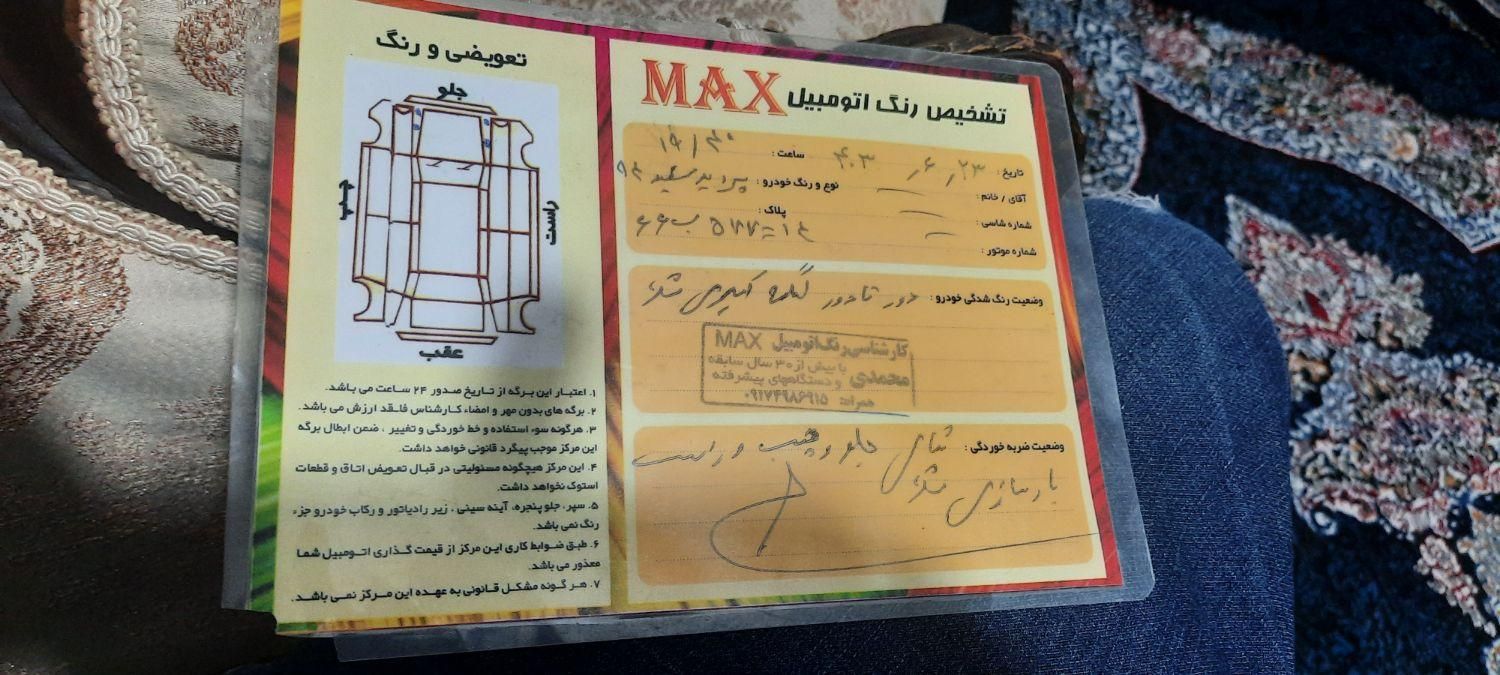 تشخیص رنگ اتومبیل MAX
تاریخ : ۲۳ / ۶ / ۴۰۳ ساعت : ۱۹/۳۰
آقای / خانم : نوع و رنگ خودرو : پراید سفید ۹۴
شماره شاسی : پلاک :
شماره موتور :
وضعیت رنگ شدگی خودرو : دور تا دور لکه گیری شده
کارشناسی رنگ اتومبیل MAX
محمدی با بیش از ۳۰ سال سابقه
و دستگاههای پیشرفته
همراه: ۰۹۱۷۴۹۸۶۹۱۵
وضعیت ضربه خوردگی : جلو و چپ و راست
بازسازی شده
تعویضی و رنگ
جلو
چپ
راست
عقب
۱. اعتبار این برگه از تاریخ صدور ۲۴ ساعت می باشد.
۲. برگه های بدون مهر و امضاء کارشناس فاقد ارزش می باشد.
۳. هرگونه سوء استفاده و خط خوردگی و تغییر ، ضمن ابطال برگه
این مرکز موجب پیگرد قانونی خواهد داشت.
۴. این مرکز هیچگونه مسئولیتی در قبال تعویض اتاق و قطعات
استوک نخواهد داشت.
۵. سپر، جلو پنجره، آینه سینی ، زیر رادیاتور و رکاب خودرو جزء
رنگ نمی باشد.
۶. طبق ضوابط کاری این مرکز از قیمت گذاری اتومبیل شما
معذور می باشد.
۷. هر گونه مشکل قانونی به عهده این مرکز نمی باشد.